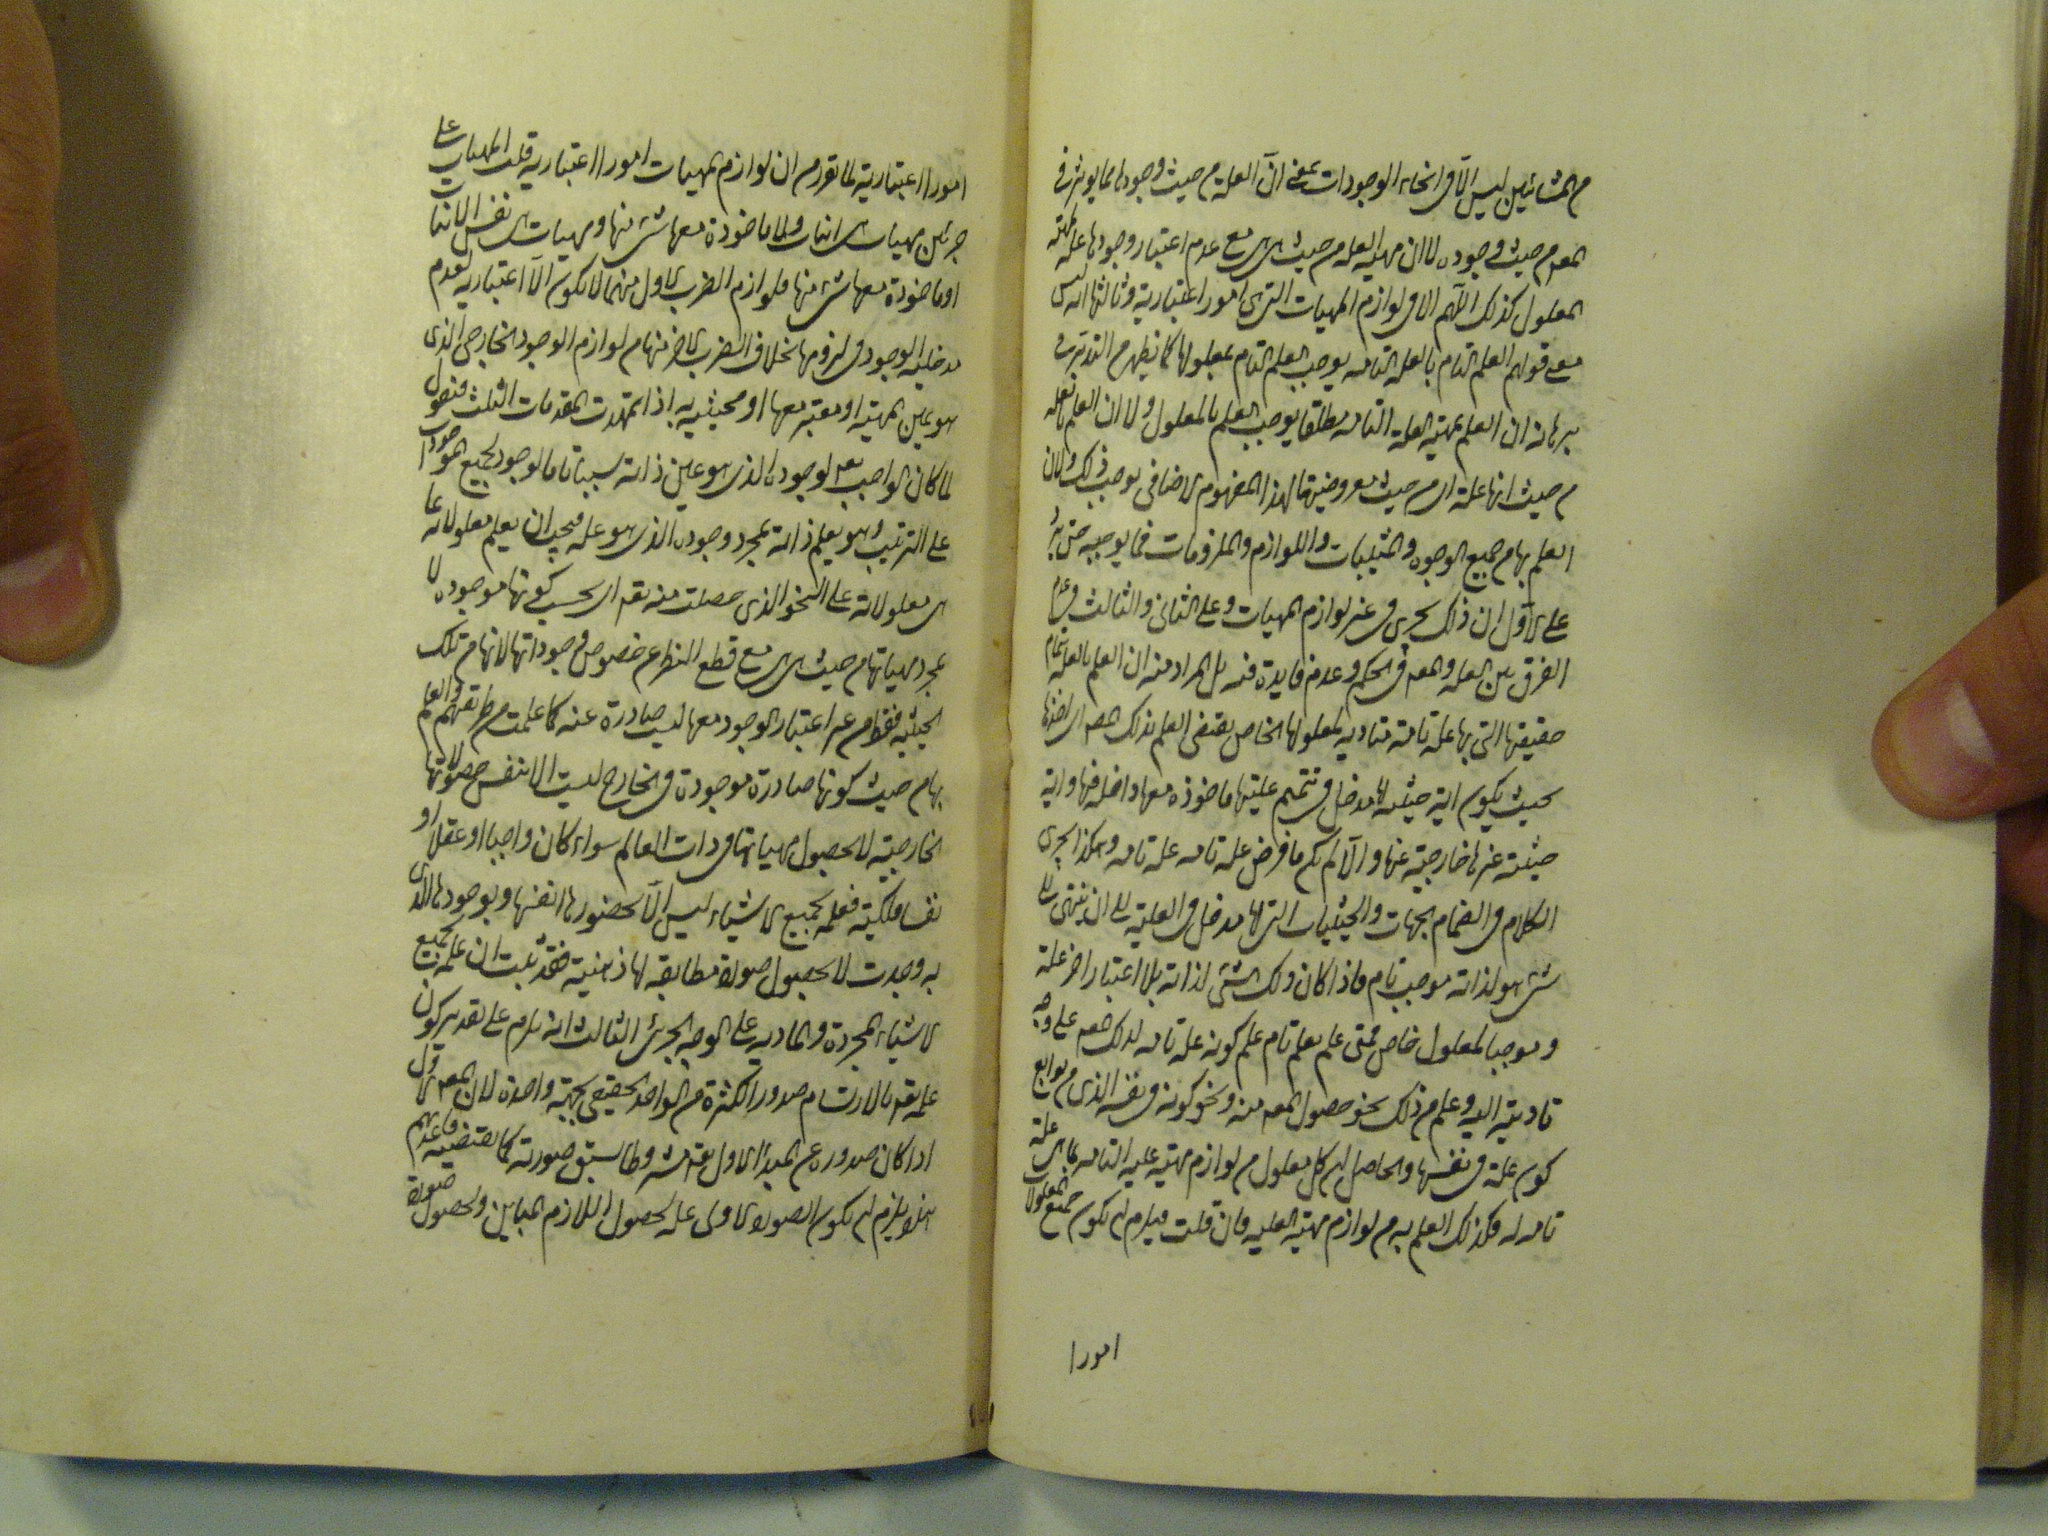 من المشائين ليس الا في انحاء الوجودات بمعنى ان العلة من حيث وجودها مما يوثر في
المعلم من حيث وجوده لا ان مهية العلة من حيث هي هي مع عدم اعتبار وجودها علة لمهية
المعلول كذلك اللهم الا في لوازم المهيات التي هي امور اعتبارية وثالثها انه ليس
معنى قولهم العلم التام بالعلة التامه يوجب العلم التام بمعلولها كما يظهر من التدبر في
برهانه ان العلم بمهية العلة التامه مطلقا يوجب العلم بالمعلول ولا ان العلم بالعله
من حيث انها علة اى من حيث معروضيتها لهذا المفهوم الاضافى يوجب ذلك ولا ان
العلم بها من جميع الوجوه والحيثيات واللوازم والملزومات مما يوجبه حتى يرد
على الاول ان ذلك يجرى في غير لوازم المهيات وعلى الثانى والثالث عدم
الفرق بين العله والمعه في الحكم وعدم فايدة فيه بل المراد منه ان العلم بالعله بتمام
حقيقتها التي بها علة تامة متادية لمعلولها الخاص يقتضى العلم بذلك المعه اى اخذها
بحيث يكون اية حيثيه لها مدخل في تتميم عليتها ماخوذه معها داخله فيها واية
حيثية غيرها خارجية عنها والا لم يكن ما فرض علة تامه علة تامه وهكذا يجرى
الكلام في انضمام الجهات والحيثيات التي لها مدخل في العلية الى ان ينتهى الى
شئ هو لذاته موجب تام فاذا كان ذلك الشئ لذاته بلا اعتبار اخر علة
وموجبا لمعلول خاص فمتى علم بعلم تام علم كونه علة تامه لذلك المعه على وجه
تاديته اليه وعلم من ذلك نحو حصول المعه منه ونحو كونه في نفسه الذى من توابع
كون علة في نفسها والحاصل ان كل معلول من لوازم مهية علية التامه بما هي علة
تامه له فكذلك العلم به من لوازم مهية العليه فان قلت فيلزم ان يكون جميع المعلولات
امورا
امورا اعتبارية لما تقدم من ان لوازم المهيات امورا اعتباريه قلت المهيات على
ضربين مهيات هي انيات ولها ماخوذة معها شئ منها ومهيات هي نفس الانيات
او ماخوذة معها شئ منها فلوازم الضرب الاول منهما لا يكون الا اعتباريه لعدم
مدخلية الوجود في لزومها بخلاف الضرب الاخر منها من لوازم الوجود الخارجى الذى
هو عين المهية او معتبر معها او محيثيه به اذا تمهدت المقدمات الثلث فنقول
لما كان الواجب تعه لوجوده الذى هو عين ذاته سببا تاما لوجود جميع الموجودات
على الترتيب وهو يعلم ذاته بمجرد وجوده الذى هو علة فيجب ان يعلم معلولاته بما
هي معلولاته على النحو الذى حصلت منه تعه اى بحسب كونها موجوده لا
بمجرد مهياتها من حيث هي هي مع قطع النظر عن خصوص وجوداتها لانها من تلك
الحيثيه فقط من غير اعتبار الوجود معها ليست صادرة عنه كما علمت من طريقتهم والعلم
بها من حيث كونها صادرة موجودة في الخارج ليست الا بنفس حصولاتها
الخارجيه لا بحصول مهياتها في ذات العالم سواء كان واجبا او عقلا او
نفسا فلكية فعلمه بجميع الاشياء ليس الا بحضورها انفسها وبوجودها الذى
به وجدت لا بحصول صورة مطابقه لها ذهنية فقد ثبت ان علمه بجميع
الاشياء المجردة والماديه على الوجه الجزئى الثالث انه يلزم على تقدير كون
علمه تعه بالارتسام صدور الكثرة من الواحد الحقيقى بجهة واحدة لان المعه الاول
اذا كان صدوره عن المبدا الاول تعه مشروطا بسبق صورته كما يقتضيه قاعدتهم
هذه يلزم ان تكون الصورة الاولى علة لحصول اللازم المباين ولحصول صورة